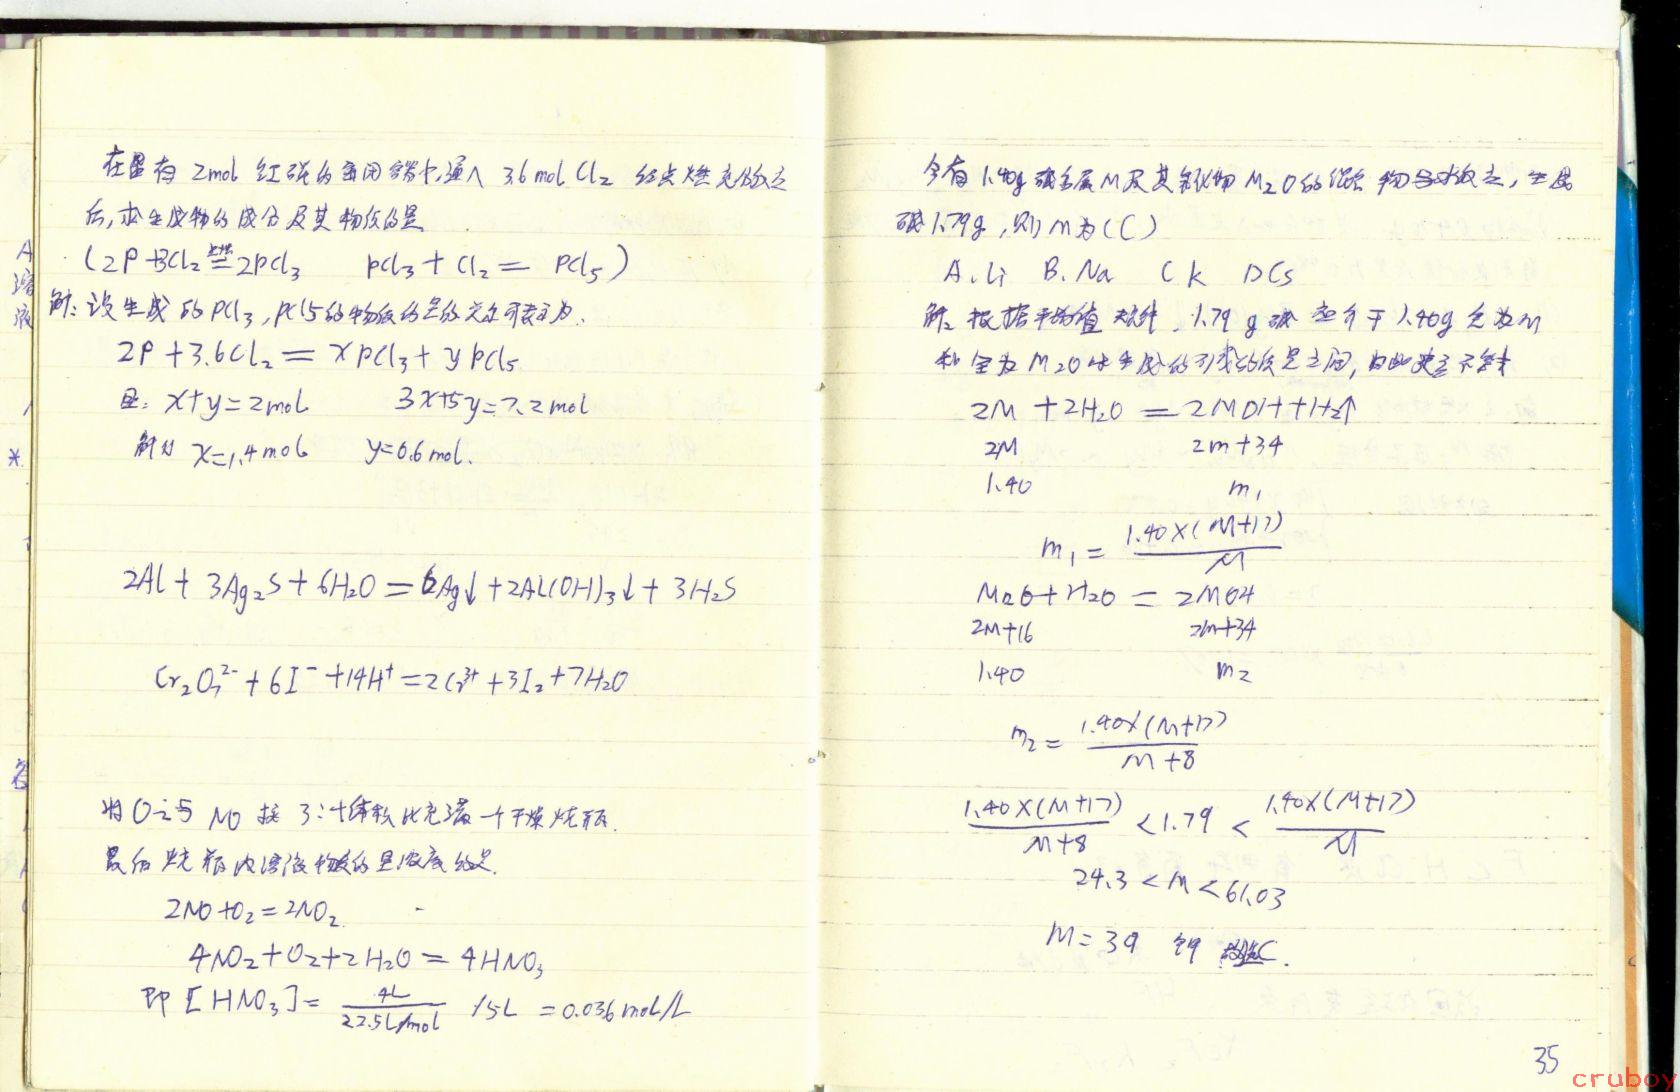 在置有 2mol 红磷的密闭容器中,通入 3.6 mol Cl₂ 经点燃充分反应
后,求生成物的成分及其物质的量
(2P+3Cl₂ 点燃= 2PCl₃ PCl₃ + Cl₂ = PCl₅)
解: 设生成的PCl₃, PCl₅的物质的量的关系可表示为.
2P + 3.6Cl₂ = xPCl₃ + yPCl₅
且: x+y=2mol 3x+5y=7.2mol
解得 x=1.4mol y=0.6mol.
2Al + 3Ag₂S + 6H₂O = 6Ag↓ + 2Al(OH)₃↓ + 3H₂S
Cr₂O₇²⁻ + 6I⁻ + 14H⁺ = 2Cr³⁺ + 3I₂ + 7H₂O
将O₂与 NO 按 3:4体积比充满一个干燥烧瓶.
最后烧瓶内溶液物质的量浓度约是.
2NO+O₂=2NO₂
4NO₂+O₂+2H₂O = 4HNO₃
即 [HNO₃]= 4L/22.5L/mol /5L = 0.036mol/L
今有1.40g碱金属M及其氧化物M₂O的混合物与水反应, 生成
碱1.79g, 则M为(C)
A.Li B.Na C K D Cs
解: 根据平均值规律, 1.79g碱应介于1.40g全为M
和全为M₂O时生成的碱的质量之间, 由此建立不等式
2M + 2H₂O = 2MOH + H₂↑
2M 2m+34
1.40 m₁
m₁ = 1.40×(M+17)/M
M₂O + H₂O = 2MOH
2M+16 2m+34
1.40 m₂
m₂ = 1.40×(M+17)/M+8
1.40×(M+17)/M+8 < 1.79 < 1.40×(M+17)/M
24.3 < M < 61.03
M=39 钾 故选C.
35
A
溶
液
*
答
cruboy